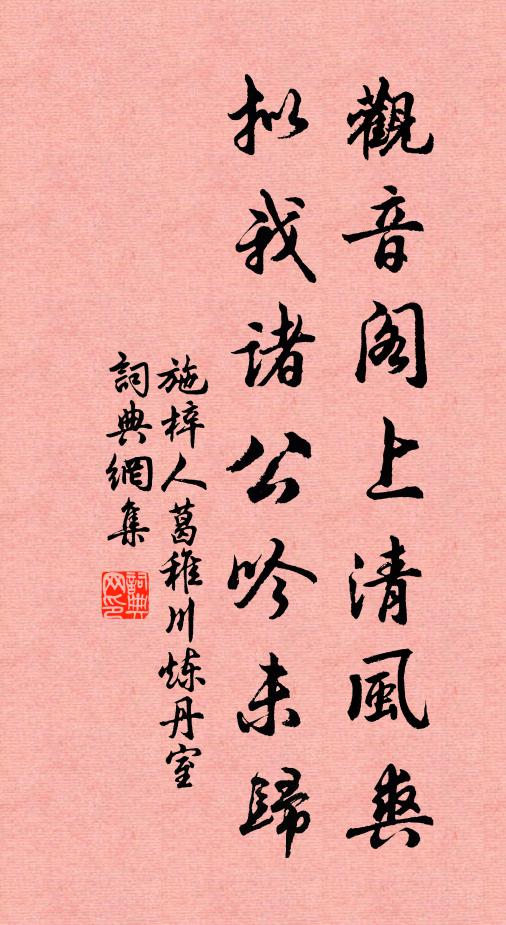 觀音阁上清風爽
拟我诸公吟未歸
施梓人葛稚川炼丹室
詞典網集
詞典网印